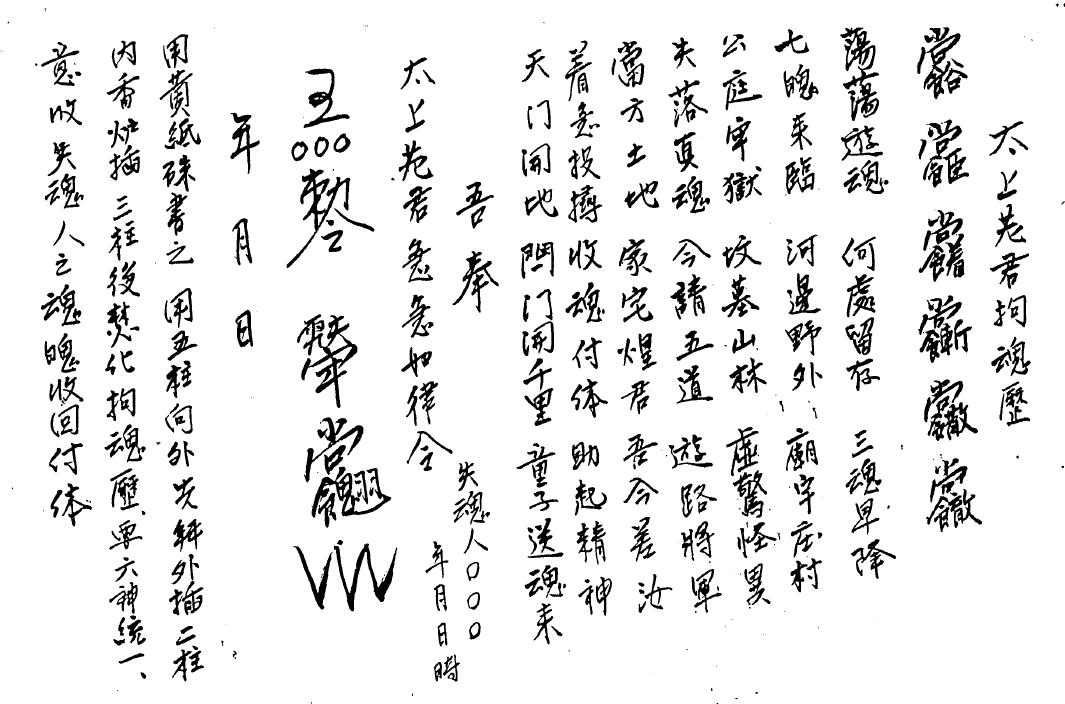 太上老君拘魂歷
蕩蕩遊魂 何處留存 三魂早降
七魄来臨 河邊野外 廟宇庄村
公庭牢獄 坟墓山林 虛驚怪異
失落真魂 今請五道 遊路將軍
當方土地 家宅煌君 吾今差汝
着急投摶 收魂付体 助起精神
天门開地門开千里 童子送魂来
吾奉
失魂人〇〇〇
年月日時
太上老君急急如律令
年 月 日
用黄紙硃書之 用五柱向外 先斜外插二柱
内香炉插三柱後焚化拘魂歷、要六神統一、
意收失魂人之魂魄收回付体